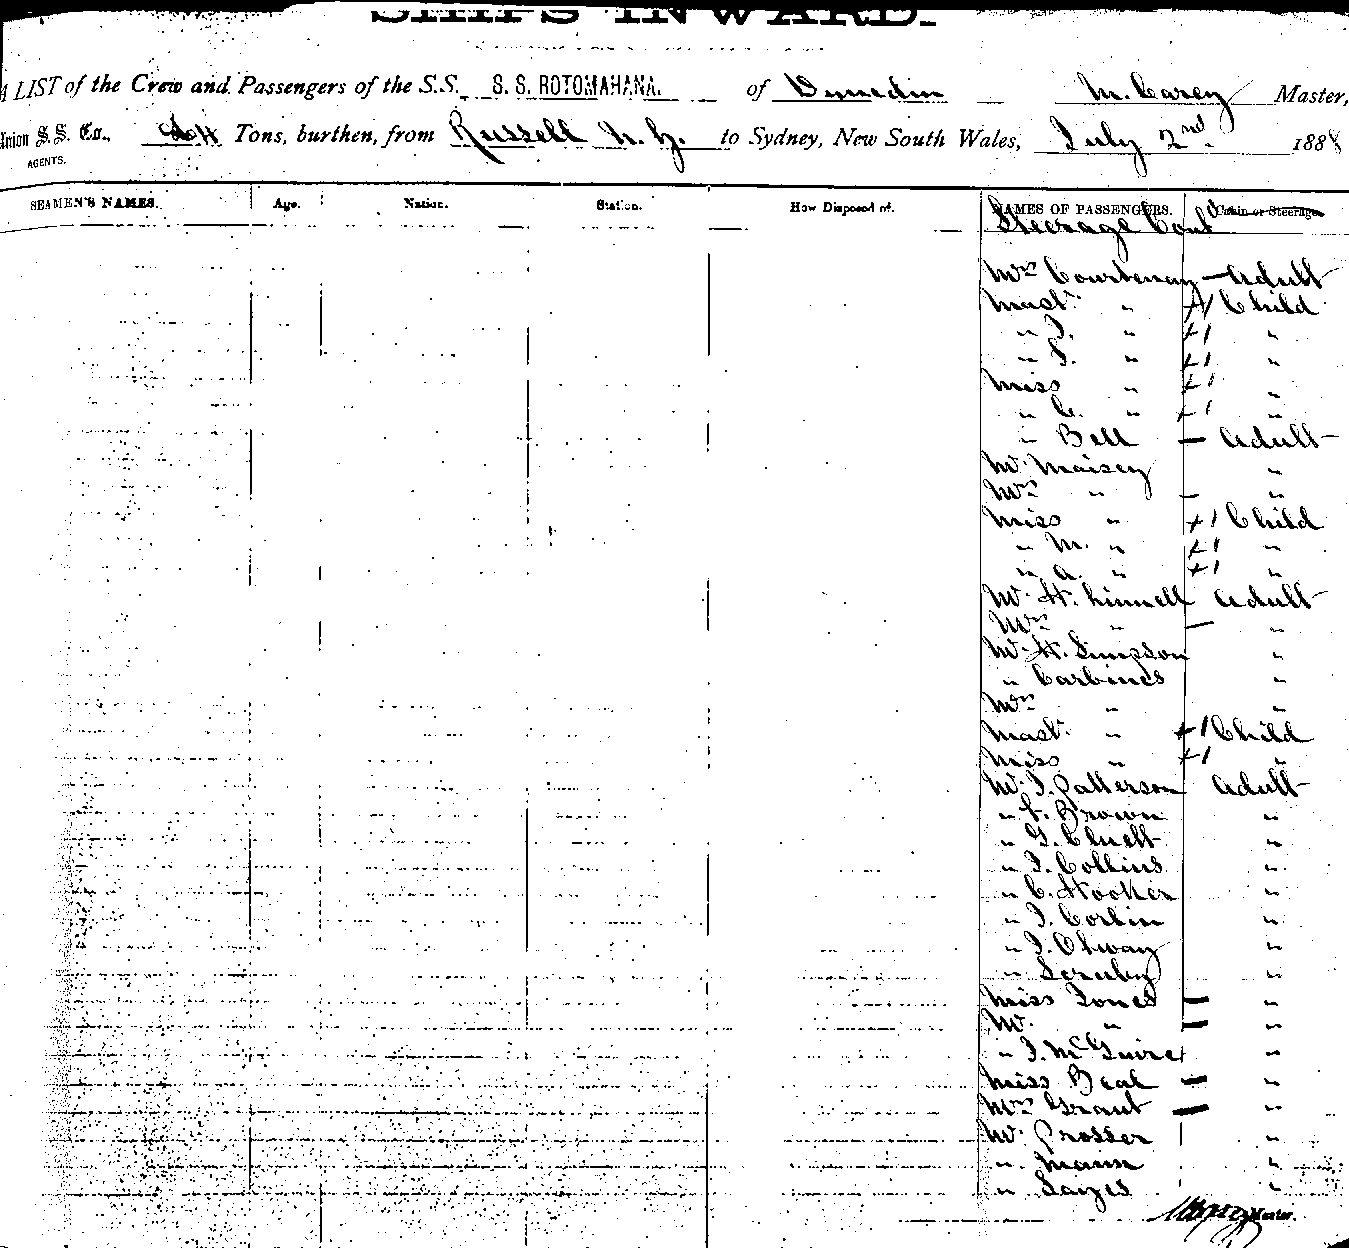 SHIPS INWARD.
A LIST of the Crew and Passengers of the S.S. S. S. ROTOMAHANA. of Dunedin M. Carey Master,
Union S.S. Co., Tons, burthen, from Russell N. Z. to Sydney, New South Wales, July 2nd 1888
AGENTS.
SEAMEN'S NAMES. Age. Nation. Station. How Disposed of. NAMES OF PASSENGERS. Cabin or Steerage.
Steerage Contd
Mrs Courtenay — Adult
Mastr " +1 Child
" J. " +1 "
" S. " +1 "
Miss " +1 "
" C. " +1 "
" Bell — Adult
Mr Maisey "
Mrs " — "
Miss " +1 Child
" M. " +1 "
" A. " +1 "
Mr H. Linnell Adult
Mrs " — "
Mr H. Simpson "
" Carbines "
Mrs " "
Mastr " +1 Child
Miss " +1 "
Mr J. Patterson Adult
" Brown "
" G. Cluett "
" J. Collins "
" C. Hooker "
" J. Corbin "
" J. Otway "
" Scruby "
Miss Jones — "
Mr " — "
" J. McGuire "
Miss Beal — "
Mrs Grant — "
Mr Prosser "
" Mann "
" Sayes "
Master.